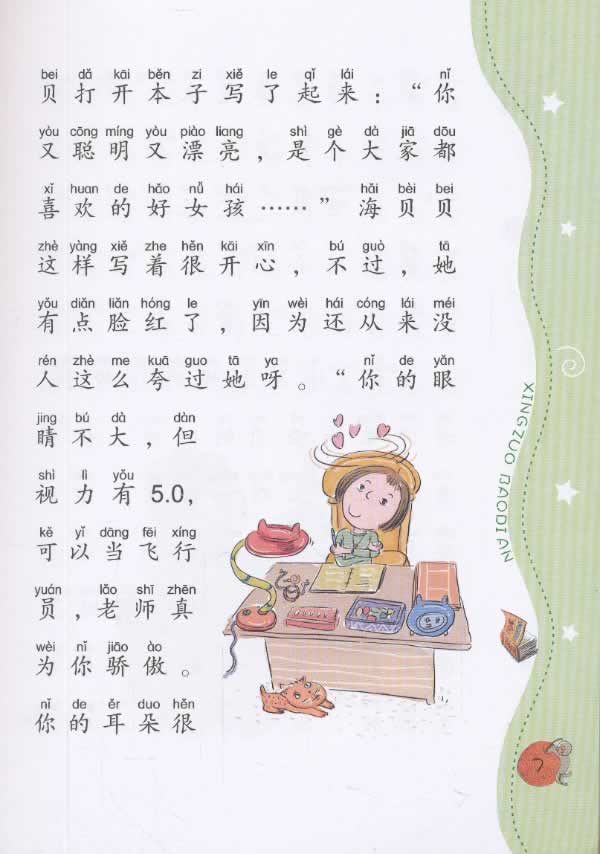 bei dǎ kāi běn zi xiě le qǐ lái nǐ
贝打开本子写了起来：“你
yòu cōng míng yòu piào liang shì gè dà jiā dōu
又聪明又漂亮，是个大家都
xǐ huan de hǎo nǚ hái hǎi bèi bei
喜欢的好女孩……”海贝贝
zhè yàng xiě zhe hěn kāi xīn bú guò tā
这样写着很开心，不过，她
yǒu diǎn liǎn hóng le yīn wèi hái cóng lái méi
有点脸红了，因为还从来没
rén zhè me kuā guo tā ya nǐ de yǎn
人这么夸过她呀。“你的眼
jing bú dà dàn
睛不大，但
shì lì yǒu
视力有5.0，
kě yǐ dāng fēi xíng
可以当飞行
yuán lǎo shī zhēn
员，老师真
wèi nǐ jiāo ào
为你骄傲。
nǐ de ěr duo hěn
你的耳朵很
XINGZUO BAODIAN